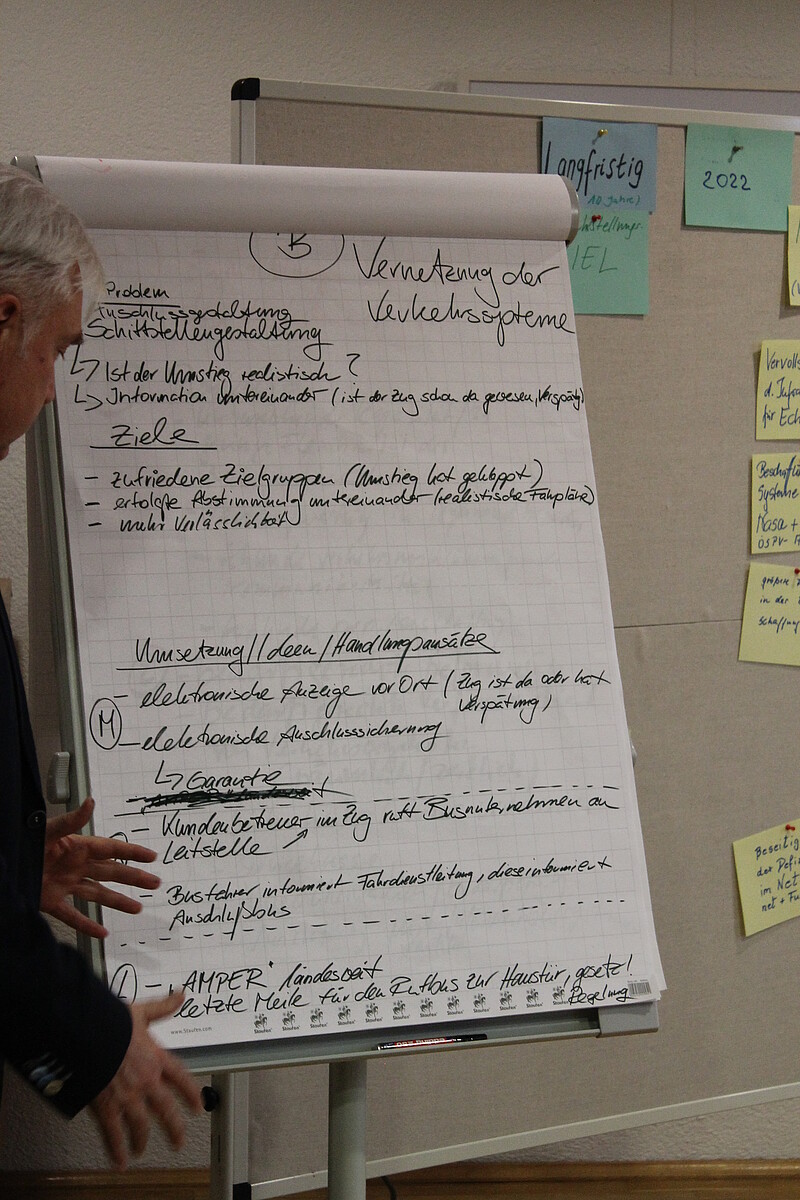 B
Vernetzung der
Verkehrssysteme
Problem
Anschlussgestaltung
Schittstellengestaltung
↳ Ist der Umstieg realistisch?
↳ Information untereinander (ist der Zug schon da gewesen, Verspät)
Ziele
- zufriedene Zielgruppen (Umstieg hat geklappt)
- erfolgte Abstimmung untereinander (realistische Fahrpläne)
- mehr Verlässlichkeit
Umsetzung/Ideen/Handlungsansätze
- elektronische Anzeige vor Ort (Zug ist da oder hat
Verspätung)
M
- elektronische Anschlusssicherung
↳ Garantie
- Kundenbetreuer im Zug ruft Busunternehmen an
Leitstelle
- Busfahrer informiert Fahrdienstleitung, diese informiert
- "AMPER" landesweit
letzte Meile für den Rufbus zur Haustür, gesetzl.
Regelung
www.Staufen.com
Staufen
Staufen
Staufen
Staufen
Staufen
Staufen
Staufen
Staufen
Staufen
Staufen
Staufen
Langfristig
10 Jahre)
IEL
2022
Vervolls
d. Infra
für Ech
Systeme
Mosa +
ÖSPV-
größere
in der
schaffun
Beseitig
der Defi
im Net
net + Fu